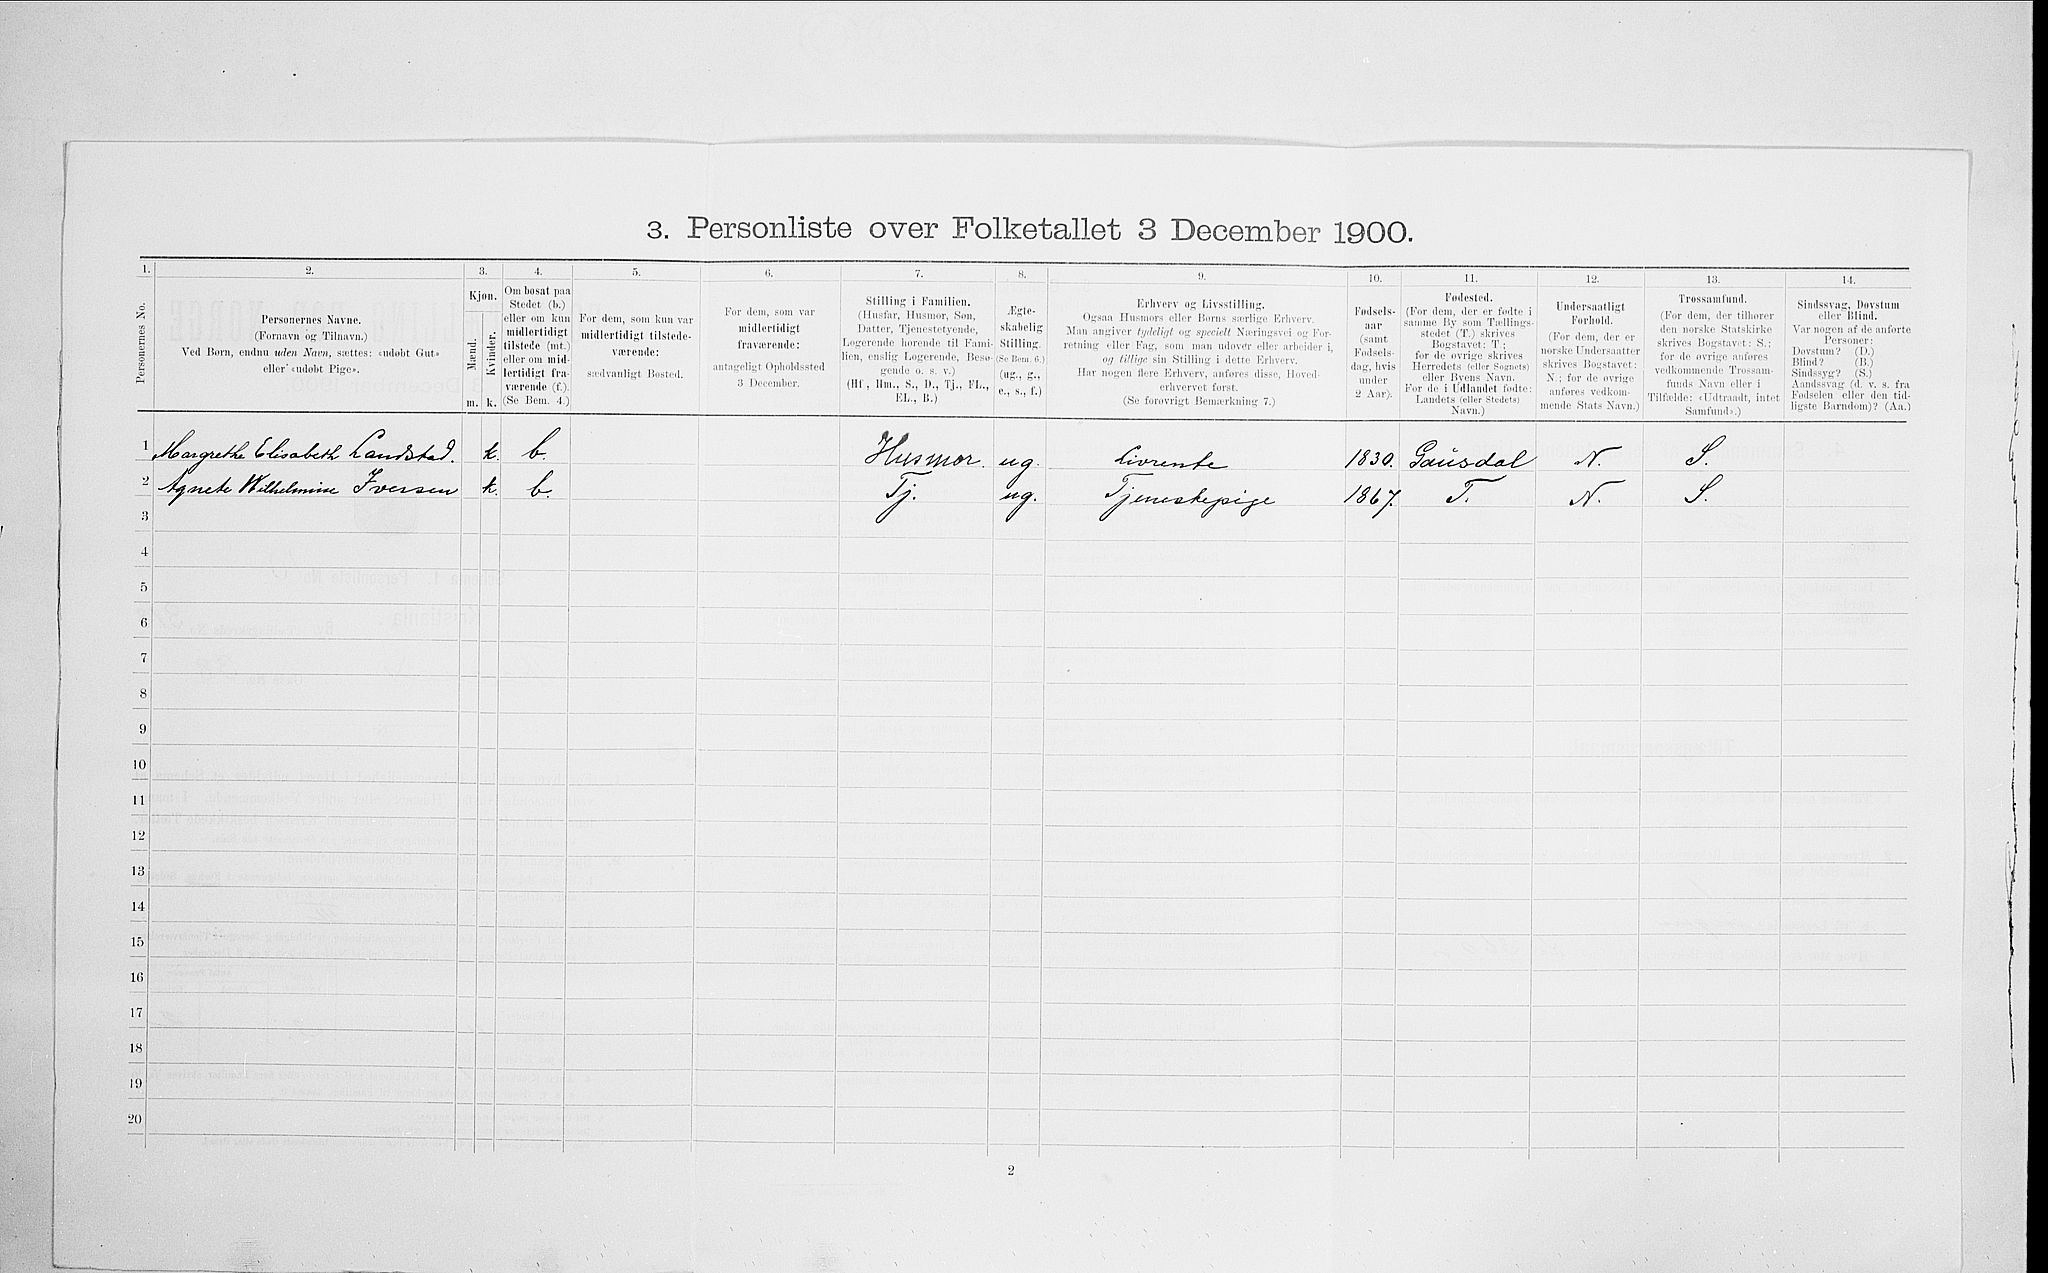 3. Personliste over Folketallet 3 December 1900.
1. 2. 3. 4. 5. 6. 7. 8. 9. 10. 11. 12. 13. 14.
Personernes No.
Personernes Navne.
(Fornavn og Tilnavn.)
Ved Børn, endnu uden Navn, sættes: «udøbt Gut»
eller «udøbt Pige».
Kjøn.
Mænd.
Kvinder.
m. k.
Om bosat paa
Stedet (b.)
eller om kun
midlertidigt
tilstede (mt.)
eller om mid-
lertidigt fra-
værende (f.).
(Se Bem. 4.)
For dem, som kun var
midlertidigt tilstede-
værende:
sædvanligt Bosted.
For dem, som var
midlertidigt
fraværende:
antageligt Opholdssted
3 December.
Stilling i Familien.
(Husfar, Husmor, Søn,
Datter, Tjenestetyende,
Logerende hørende til Fami-
lien, enslig Logerende, Besø-
gende o. s. v.)
(Hf, Hm., S., D., Tj., FL.,
EL., B.)
Ægte-
skabelig
Stilling.
(Se Bem. 6.)
(ug., g.,
e., s., f.)
Erhverv og Livsstilling.
Ogsaa Husmors eller Børns særlige Erhverv.
Man angiver tydeligt og specielt Næringsvei og For-
retning eller Fag, som man udøver eller arbeider i,
og tillige sin Stilling i dette Erhverv.
Har nogen flere Erhverv, anføres disse, Hoved-
erhvervet først.
(Se forøvrigt Bemærkning 7.)
Fødsels-
aar
(samt
Fødsels-
dag, hvis
under
2 Aar).
Fødested.
(For dem, der er fødte i
samme By som Tællings-
stedet (T.) skrives
Bogstavet: T.;
for de øvrige skrives
Herredets (eller Sognets)
eller Byens Navn.
For de i Udlandet fødte:
Landets (eller Stedets)
Navn.)
Undersaatligt
Forhold.
(For dem, der er
norske Undersaatter
skrives Bogstavet:
N.; for de øvrige
anføres vedkom-
mende Stats Navn.)
Trossamfund.
(For dem, der tilhører
den norske Statskirke
skrives Bogstavet: S.;
for de øvrige anføres
vedkommende Trossam-
funds Navn eller i
Tilfælde: «Udtraadt, intet
Samfund».)
Sindssvag, Døvstum
eller Blind.
Var nogen af de anførte
Personer:
Døvstum? (D.)
Blind? (B.)
Sindssyg? (S.)
Aandssvag (d. v. s. fra
Fødselen eller den tid-
ligste Barndom)? (Aa.)
1 Margrethe Elisabeth Landstad. k. b. Husmor. ug. Livrente 1830. Gausdal N. S.
2 Agnete Wilhelmine Iversen k. b. Tj. ug. Tjenestepige 1867. T. N. S.
3
4
5
6
7
8
9
10
11
12
13
14
15
16
17
18
19
20
2